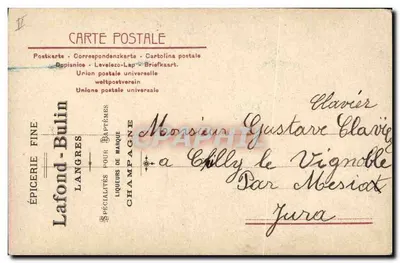 CARTE POSTALE
Postkarte - Correspondenzkarte - Cartolina postale
Dopisnice - Levelezo-Lap - Briefkaart.
Union postale universelle
weltpostverein
Unione postale universale
ÉPICERIE FINE
Lafond-Bulin
LANGRES
SPÉCIALITÉS POUR BAPTÊMES
LIQUEURS DE MARQUE
CHAMPAGNE
Clavier
Monsieur Gustave
a le Vignoble
Par
Jura